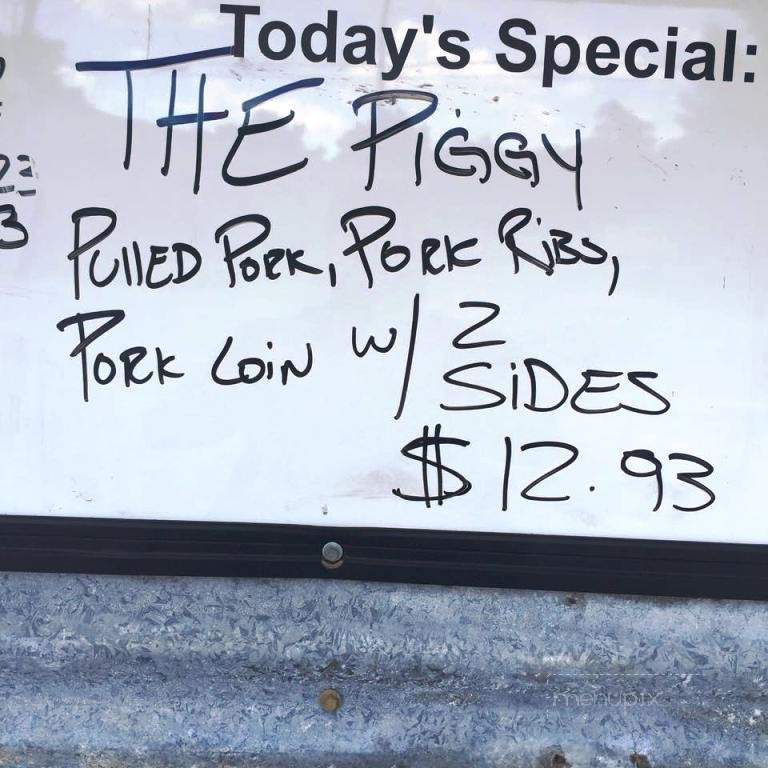 Today's Special:
THE PIGGY
PULLED PORK, PORK RIBS,
PORK LOIN W/ 2
SIDES
$12.93
3
menupix